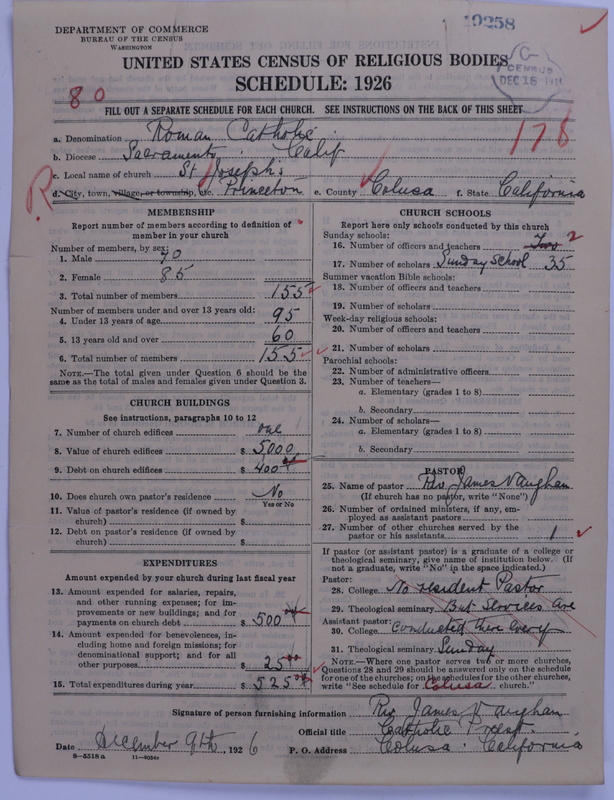 DEPARTMENT OF COMMERCE
BUREAU OF THE CENSUS
WASHINGTON
19258
UNITED STATES CENSUS OF RELIGIOUS BODIES
SCHEDULE: 1926
CENSUS
DEC 16
80
FILL OUT A SEPARATE SCHEDULE FOR EACH CHURCH. SEE INSTRUCTIONS ON THE BACK OF THIS SHEET
178
a. Denomination Roman Catholic
b. Diocese Sacramento, Calif
c. Local name of church St Joseph's
R
d. City, town, village, or township, etc. Princeton e. County Colusa f. State California
MEMBERSHIP
Report number of members according to definition of member in your church
Number of members, by sex:
1. Male 70
2. Female 85
3. Total number of members 155
Number of members under and over 13 years old:
4. Under 13 years of age 95
5. 13 years old and over 60
6. Total number of members 155
NOTE.—The total given under Question 6 should be the same as the total of males and females given under Question 3.
CHURCH BUILDINGS
See instructions, paragraphs 10 to 12
7. Number of church edifices one
8. Value of church edifices $ 5000
9. Debt on church edifices $ 400
10. Does church own pastor's residence No
Yes or No
11. Value of pastor's residence (if owned by church) $
12. Debt on pastor's residence (if owned by church) $
EXPENDITURES
Amount expended by your church during last fiscal year
13. Amount expended for salaries, repairs, and other running expenses; for improvements or new buildings; and for payments on church debt $ 500
14. Amount expended for benevolences, including home and foreign missions; for denominational support; and for all other purposes $ 25 00
15. Total expenditures during year $ 525
CHURCH SCHOOLS
Report here only schools conducted by this church
Sunday schools:
16. Number of officers and teachers Two 2
17. Number of scholars Sunday School 35
Summer vacation Bible schools:
18. Number of officers and teachers
19. Number of scholars
Week-day religious schools:
20. Number of officers and teachers
21. Number of scholars
Parochial schools:
22. Number of administrative officers
23. Number of teachers—
a. Elementary (grades 1 to 8)
b. Secondary
24. Number of scholars—
a. Elementary (grades 1 to 8)
b. Secondary
PASTOR
25. Name of pastor Rev James Vaughan
(If church has no pastor, write "None")
26. Number of ordained ministers, if any, employed as assistant pastors
27. Number of other churches served by the pastor or his assistants 1
If pastor (or assistant pastor) is a graduate of a college or theological seminary, give name of institution below. (If not a graduate, write "No" in the space indicated.)
Pastor:
28. College No resident Pastor
29. Theological seminary But Services are
Assistant pastor:
30. College conducted there every
31. Theological seminary Sunday
NOTE.—Where one pastor serves two or more churches, Questions 28 and 29 should be answered only on the schedule for one of the churches; on the schedules for the other churches, write "See schedule for Colusa church."
Signature of person furnishing information Rev James Vaughan
Official title Catholic Priest.
Date December 9th, 1926 P. O. Address Colusa. California
8-5518 a 11-9034